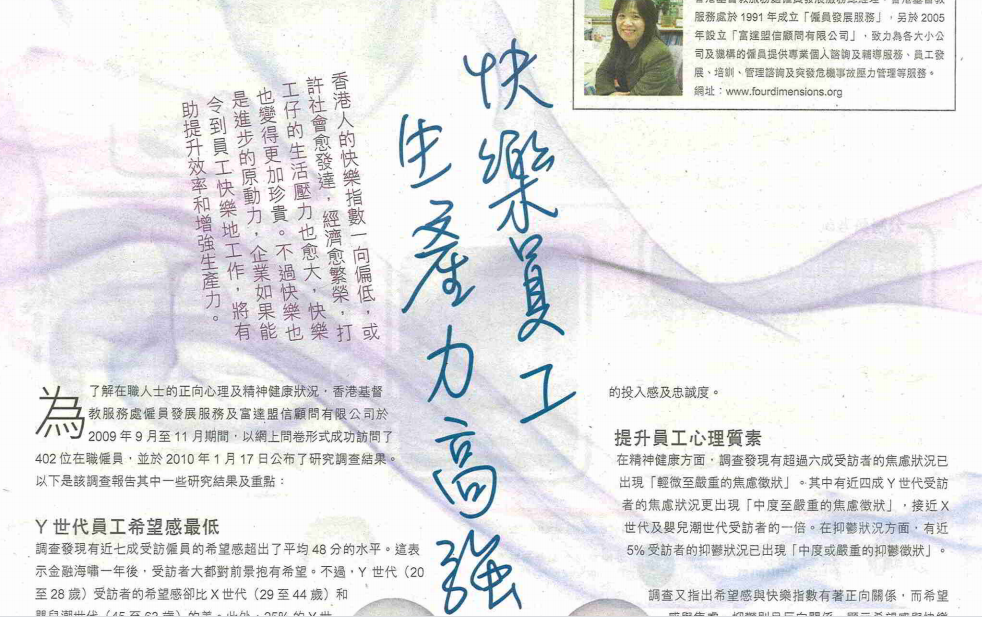 服務處於 1991 年成立「僱員發展服務」，另於 2005
年設立「富達盟信顧問有限公司」，致力為各大小公
司及機構的僱員提供專業個人諮詢及輔導服務、員工發
展、培訓、管理諮詢及突發危機事故壓力管理等服務。
網址：www.fourdimensions.org
快樂員工
生產力高強
香港人的快樂指數一向偏低，或
許社會愈發達，經濟愈繁榮，打
工仔的生活壓力也愈大，快樂
也變得更加珍貴。不過快樂也
是進步的原動力，企業如果能
令到員工快樂地工作，將有
助提升效率和增強生產力。
為了解在職人士的正向心理及精神健康狀況，香港基督
教服務處僱員發展服務及富達盟信顧問有限公司於
2009 年 9 月至 11 月期間，以網上問卷形式成功訪問了
402 位在職僱員，並於 2010 年 1 月 17 日公布了研究調查結果。
以下是該調查報告其中一些研究結果及重點：
Y 世代員工希望感最低
調查發現有近七成受訪僱員的希望感超出了平均 48 分的水平。這表
示金融海嘯一年後，受訪者大都對前景抱有希望。不過，Y 世代（20
至 28 歲）受訪者的希望感卻比 X 世代（29 至 44 歲）和
的投入感及忠誠度。
提升員工心理質素
在精神健康方面，調查發現有超過六成受訪者的焦慮狀況已
出現「輕微至嚴重的焦慮徵狀」。其中有近四成 Y 世代受訪
者的焦慮狀況更出現「中度至嚴重的焦慮徵狀」，接近 X
世代及嬰兒潮世代受訪者的一倍。在抑鬱狀況方面，有近
5% 受訪者的抑鬱狀況已出現「中度或嚴重的抑鬱徵狀」。
調查又指出希望感與快樂指數有著正向關係，而希望